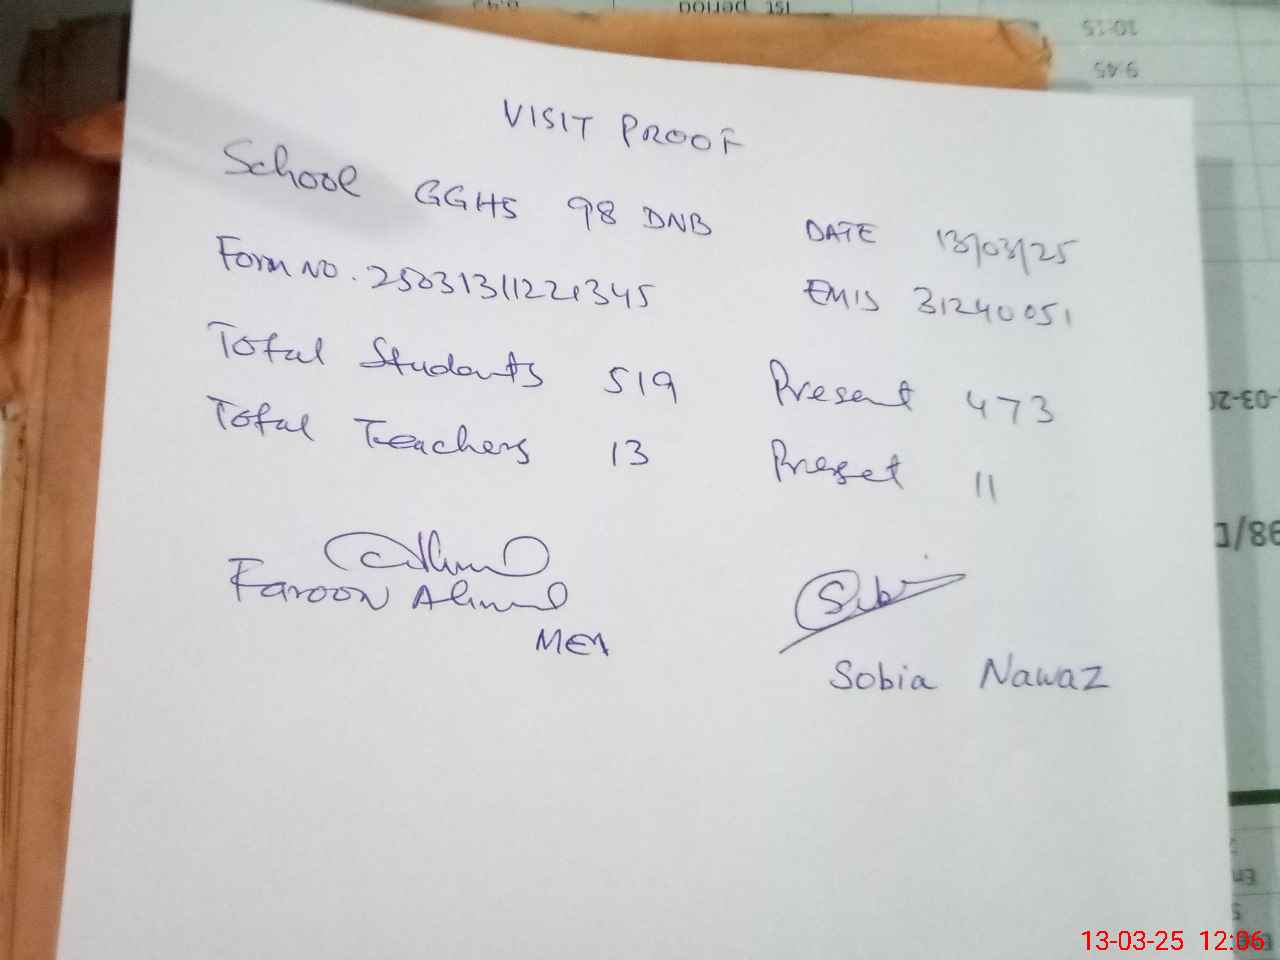 VISIT PROOF
School GGHS 98 DNB DATE 13/03/25
Form NO. 25031311221345 EMIS 31240051
Total Students 519 Present 473
Total Teachers 13 Preset 11
Faroon Ahmed
MEA
Sobia Nawaz
1st period
10:15
9:45
13-03-25 12:06